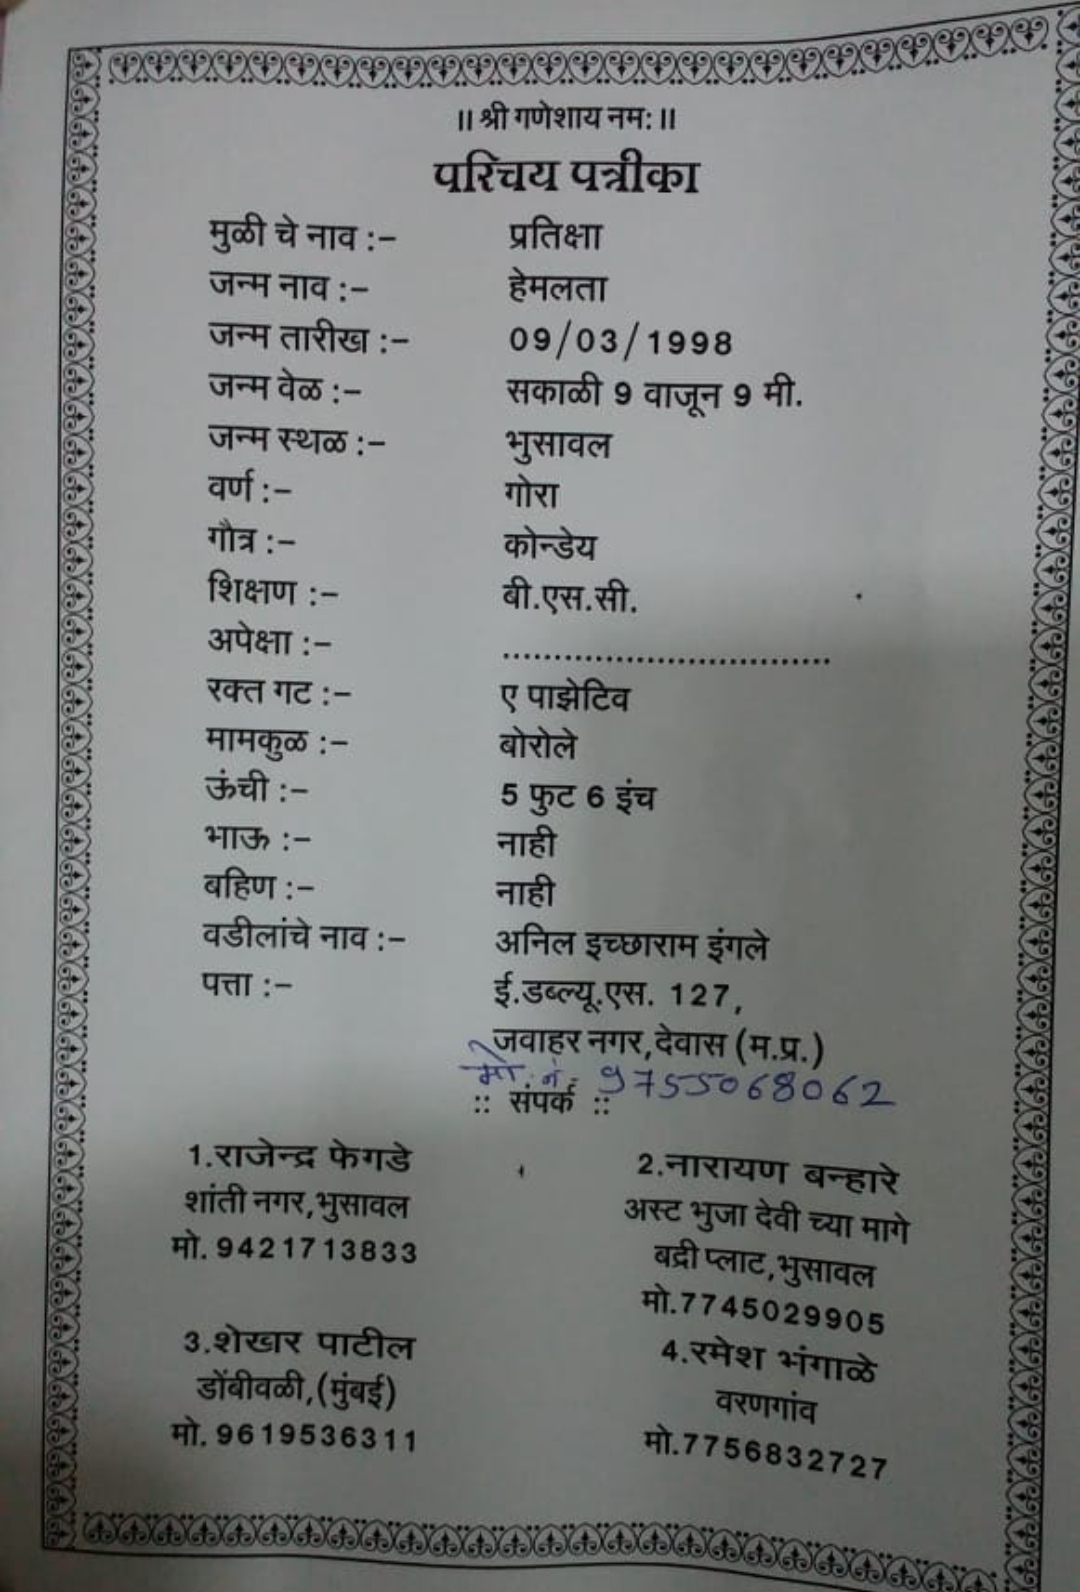 ॥ श्री गणेशाय नम: ॥
परिचय पत्रीका
मुळी चे नाव :- प्रतिक्षा
जन्म नाव :- हेमलता
जन्म तारीख :- 09/03/1998
जन्म वेळ :- सकाळी 9 वाजून 9 मी.
जन्म स्थळ :- भुसावल
वर्ण :- गोरा
गौत्र :- कोन्डेय
शिक्षण :- बी.एस.सी.
अपेक्षा :- ................................
रक्त गट :- ए पाझेटिव
मामकुळ :- बोरोले
ऊंची :- 5 फुट 6 इंच
भाऊ :- नाही
बहिण :- नाही
वडीलांचे नाव :- अनिल इच्छाराम इंगले
पत्ता :- ई.डब्ल्यू.एस. 127,
जवाहर नगर,देवास (म.प्र.)
मो. नं. 9755068062
:: संपर्क ::
1.राजेन्द्र फेगडे
शांती नगर,भुसावल
मो. 9421713833
2.नारायण बन्हारे
अस्ट भुजा देवी च्या मागे
बद्री प्लाट,भुसावल
मो.7745029905
3.शेखर पाटील
डोंबीवळी,(मुंबई)
मो. 9619536311
4.रमेश भंगाळे
वरणगांव
मो.7756832727